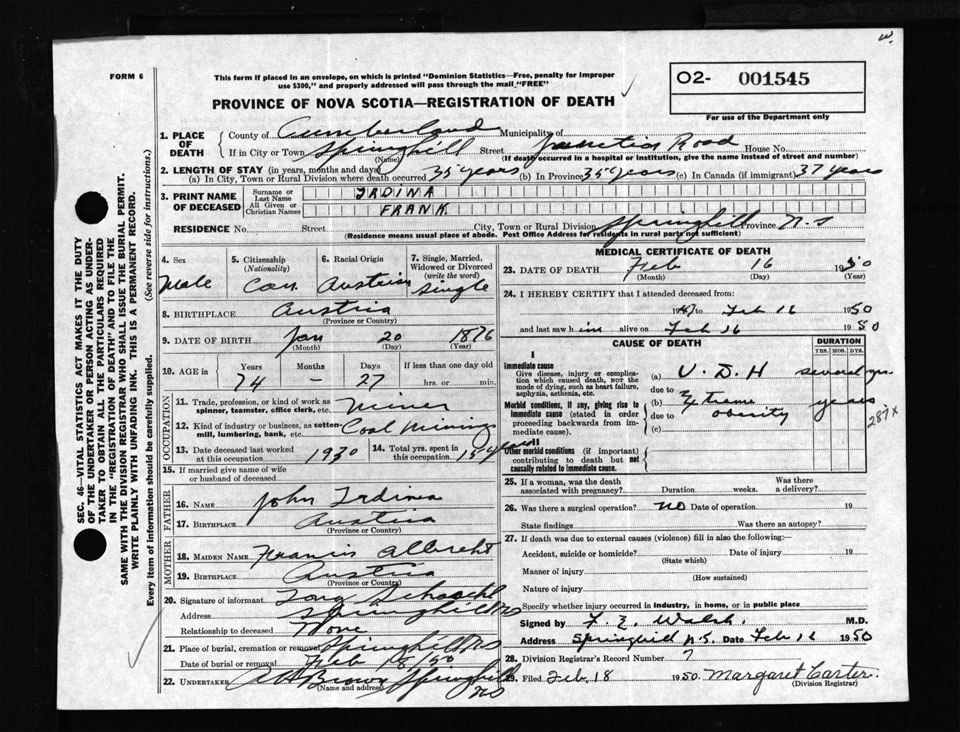 w.
FORM 6
This form if placed in an envelope, on which is printed "Dominion Statistics—Free, penalty for improper
use $300," and properly addressed will pass through the mail "FREE"
O2- 001545
For use of the Department only
PROVINCE OF NOVA SCOTIA—REGISTRATION OF DEATH
1. PLACE OF DEATH
County of Cumberland Municipality of
If in City or Town Springhill Street Junction Road House No.
(Name) (If death occurred in a hospital or institution, give the name instead of street and number)
2. LENGTH OF STAY (in years, months and days)
(a) In City, Town or Rural Division where death occurred 35 years (b) In Province 35 years (c) In Canada (if immigrant) 37 years
3. PRINT NAME OF DECEASED
Surname or Last Name IRDINA
All Given or Christian Names FRANK
RESIDENCE No. Street City, Town or Rural Division Springhill Province N.S
(Residence means usual place of abode. Post Office Address for residents in rural parts not sufficient)
4. Sex Male
5. Citizenship (Nationality) Can
6. Racial Origin Austrian
7. Single, Married, Widowed or Divorced (write the word) Single
8. BIRTHPLACE Austria
(Province or Country)
9. DATE OF BIRTH Jan 20 1876
(Month) (Day) (Year)
10. AGE in Years Months Days If less than one day old
74 — 27 hrs. or min.
OCCUPATION
11. Trade, profession, or kind of work as
spinner, teamster, office clerk, etc. Miner
12. Kind of industry or business, as cotton-
mill, lumbering, bank, etc. Coal Mining
13. Date deceased last worked at this occupation 1930
14. Total yrs. spent in this occupation 15 years
15. If married give name of wife
or husband of deceased
FATHER
16. Name John Irdina
17. Birthplace Austria
(Province or Country)
MOTHER
18. MAIDEN NAME Francis Albrecht
19. BIRTHPLACE Austria
(Province or Country)
20. Signature of informant
Address Springhill NS
Relationship to deceased None
21. Place of burial, cremation or removal Springhill NS
Date of burial or removal Feb 18/50
22. UNDERTAKER A H Brown Springhill
(Name and address) NS
MEDICAL CERTIFICATE OF DEATH
23. DATE OF DEATH Feb 16 1950
(Month) (Day) (Year)
24. I HEREBY CERTIFY that I attended deceased from:
to Feb 16 1950
and last saw him alive on Feb 16 1950
CAUSE OF DEATH
DURATION
YRS. MOS. DYS.
I
Immediate cause
Give disease, injury or complica-
tion which caused death, NOT the
mode of dying, such as heart failure,
asphyxia, asthenia, etc.
(a) V. D. H several yrs.
due to
Morbid conditions, if any, giving rise to
immediate cause (stated in order
proceeding backwards from im-
mediate cause).
(b) Extreme years
due to obesity
(c)
287x
II
Other morbid conditions (if important)
contributing to death but not
causally related to immediate cause.
25. If a woman, was the death
associated with pregnancy? Duration weeks. Was there a delivery?
26. Was there a surgical operation? NO Date of operation 19
State findings Was there an autopsy?
27. If death was due to external causes (violence) fill in also the following:—
Accident, suicide or homicide? Date of injury 19
(State which)
Manner of injury
(How sustained)
Nature of injury
Specify whether injury occurred in industry, in home, or in public place
Signed by F. E. Walsh. M.D.
Address Springhill N.S. Date Feb 16 1950
28. Division Registrar's Record Number 7
29. Filed Feb. 18 1950 Margaret Carter.
(Division Registrar)
SEC. 46—VITAL STATISTICS ACT MAKES IT THE DUTY
OF THE UNDERTAKER OR PERSON ACTING AS UNDER-
TAKER TO OBTAIN ALL THE PARTICULARS REQUIRED
IN THE "REGISTRATION OF DEATH" AND TO FILE THE
SAME WITH THE DIVISION REGISTRAR WHO SHALL ISSUE THE BURIAL PERMIT.
WRITE PLAINLY WITH UNFADING INK. THIS IS A PERMANENT RECORD.
Every item of information should be carefully supplied. (See reverse side for instructions.)